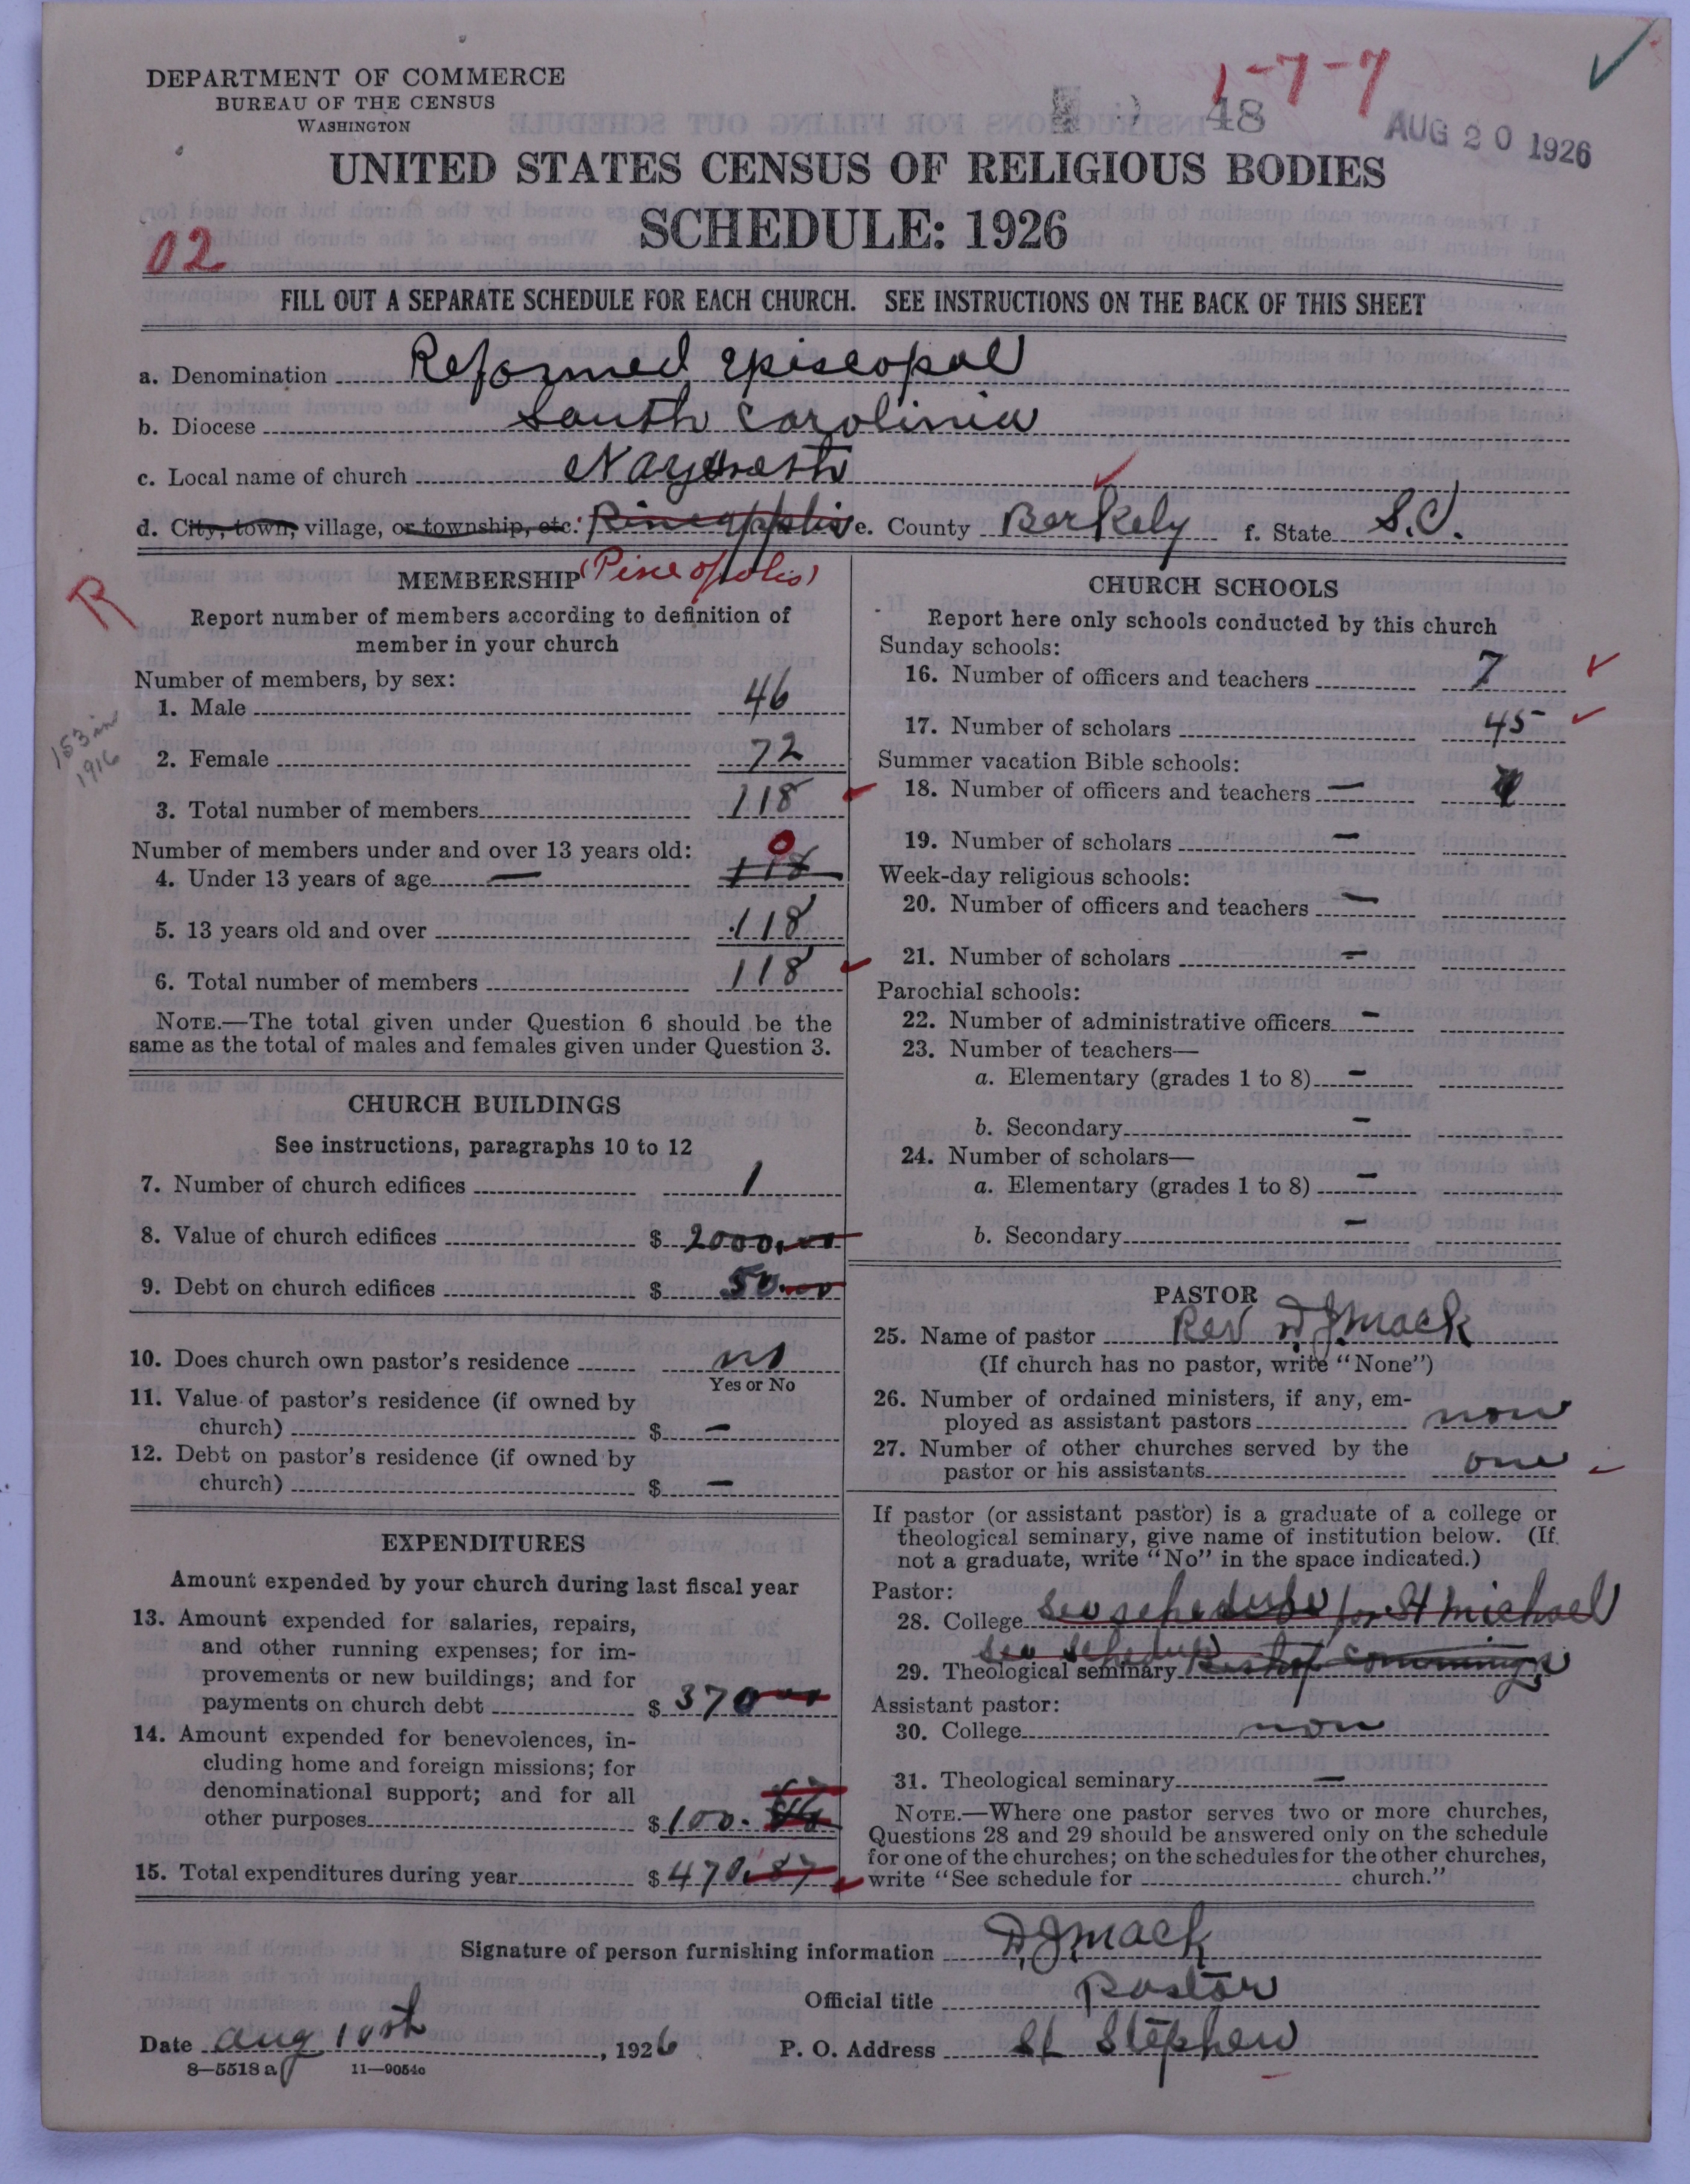 DEPARTMENT OF COMMERCE
BUREAU OF THE CENSUS
WASHINGTON
1-7-7
48
AUG 20 1926
UNITED STATES CENSUS OF RELIGIOUS BODIES
SCHEDULE: 1926
02
FILL OUT A SEPARATE SCHEDULE FOR EACH CHURCH. SEE INSTRUCTIONS ON THE BACK OF THIS SHEET
a. Denomination Reformed Episcopal
b. Diocese South Carolinia
c. Local name of church Nazareth
d. City, town, village, or township, etc. Pineapplis e. County Berkely f. State S.C.
(Pineopolis)
R
MEMBERSHIP
Report number of members according to definition of
member in your church
Number of members, by sex:
1. Male 46
153 in
1916
2. Female 72
3. Total number of members 118
Number of members under and over 13 years old:
4. Under 13 years of age — 118 0
5. 13 years old and over 118
6. Total number of members 118
NOTE.—The total given under Question 6 should be the
same as the total of males and females given under Question 3.
CHURCH BUILDINGS
See instructions, paragraphs 10 to 12
7. Number of church edifices 1
8. Value of church edifices $ 2000.00
9. Debt on church edifices $ 50.00
10. Does church own pastor's residence no
Yes or No
11. Value of pastor's residence (if owned by
church) $ —
12. Debt on pastor's residence (if owned by
church) $ —
EXPENDITURES
Amount expended by your church during last fiscal year
13. Amount expended for salaries, repairs,
and other running expenses; for im-
provements or new buildings; and for
payments on church debt $ 370 00
14. Amount expended for benevolences, in-
cluding home and foreign missions; for
denominational support; and for all
other purposes $ 100.
15. Total expenditures during year $ 470.87
CHURCH SCHOOLS
Report here only schools conducted by this church
Sunday schools:
16. Number of officers and teachers 7
17. Number of scholars 45
Summer vacation Bible schools:
18. Number of officers and teachers —
19. Number of scholars —
Week-day religious schools:
20. Number of officers and teachers —
21. Number of scholars —
Parochial schools:
22. Number of administrative officers —
23. Number of teachers—
a. Elementary (grades 1 to 8) —
b. Secondary —
24. Number of scholars—
a. Elementary (grades 1 to 8) —
b. Secondary —
PASTOR
25. Name of pastor Rev D J Mack
(If church has no pastor, write "None")
26. Number of ordained ministers, if any, em-
ployed as assistant pastors non
27. Number of other churches served by the
pastor or his assistants one
If pastor (or assistant pastor) is a graduate of a college or
theological seminary, give name of institution below. (If
not a graduate, write "No" in the space indicated.)
Pastor:
28. College See schedule for St Michael
See schedule
29. Theological seminary Bishop Cummings
Assistant pastor:
30. College non
31. Theological seminary —
NOTE.—Where one pastor serves two or more churches,
Questions 28 and 29 should be answered only on the schedule
for one of the churches; on the schedules for the other churches,
write "See schedule for church."
Signature of person furnishing information D J Mack
Official title Pastor
Date Aug 10th, 1926 P. O. Address St Stephen
8—5518 a 11—9054c